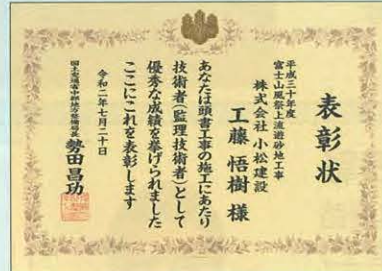 表彰状
平成三十年度
富士山風祭上流遊砂地工事
株式会社 小松建設
工藤 悟樹 様
あなたは頭書工事の施工にあたり
技術者(監理技術者)として
優秀な成績を挙げられました
ここにこれを表彰します
令和二年七月二十日
国土交通省中部地方整備局長 勢田昌功